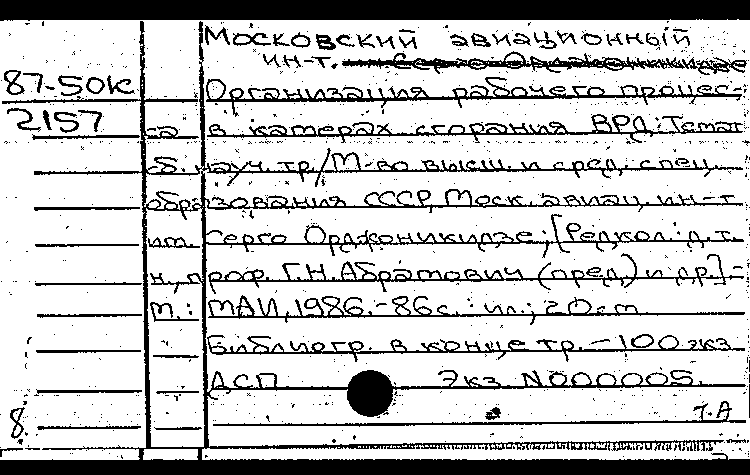 Московский авиационный
ин-т. им. Серго Орджоникидзе
87-50к
Организация рабочего процес-
2157
са в камерах сгорания ВРД: Темат.
сб. науч. тр./М-во высш. и сред. спец.
образования СССР, Моск. авиац. ин-т
им. Серго Орджоникидзе; [Редкол.: д.т.
н., проф. Г.Н. Абрамович (пред.) и др.]-
М.: МАИ, 1986.-86с.: ил.; 20см.
Библиогр. в конце тр. - 100 экз
ДСП Экз N000005.
т.А
8.